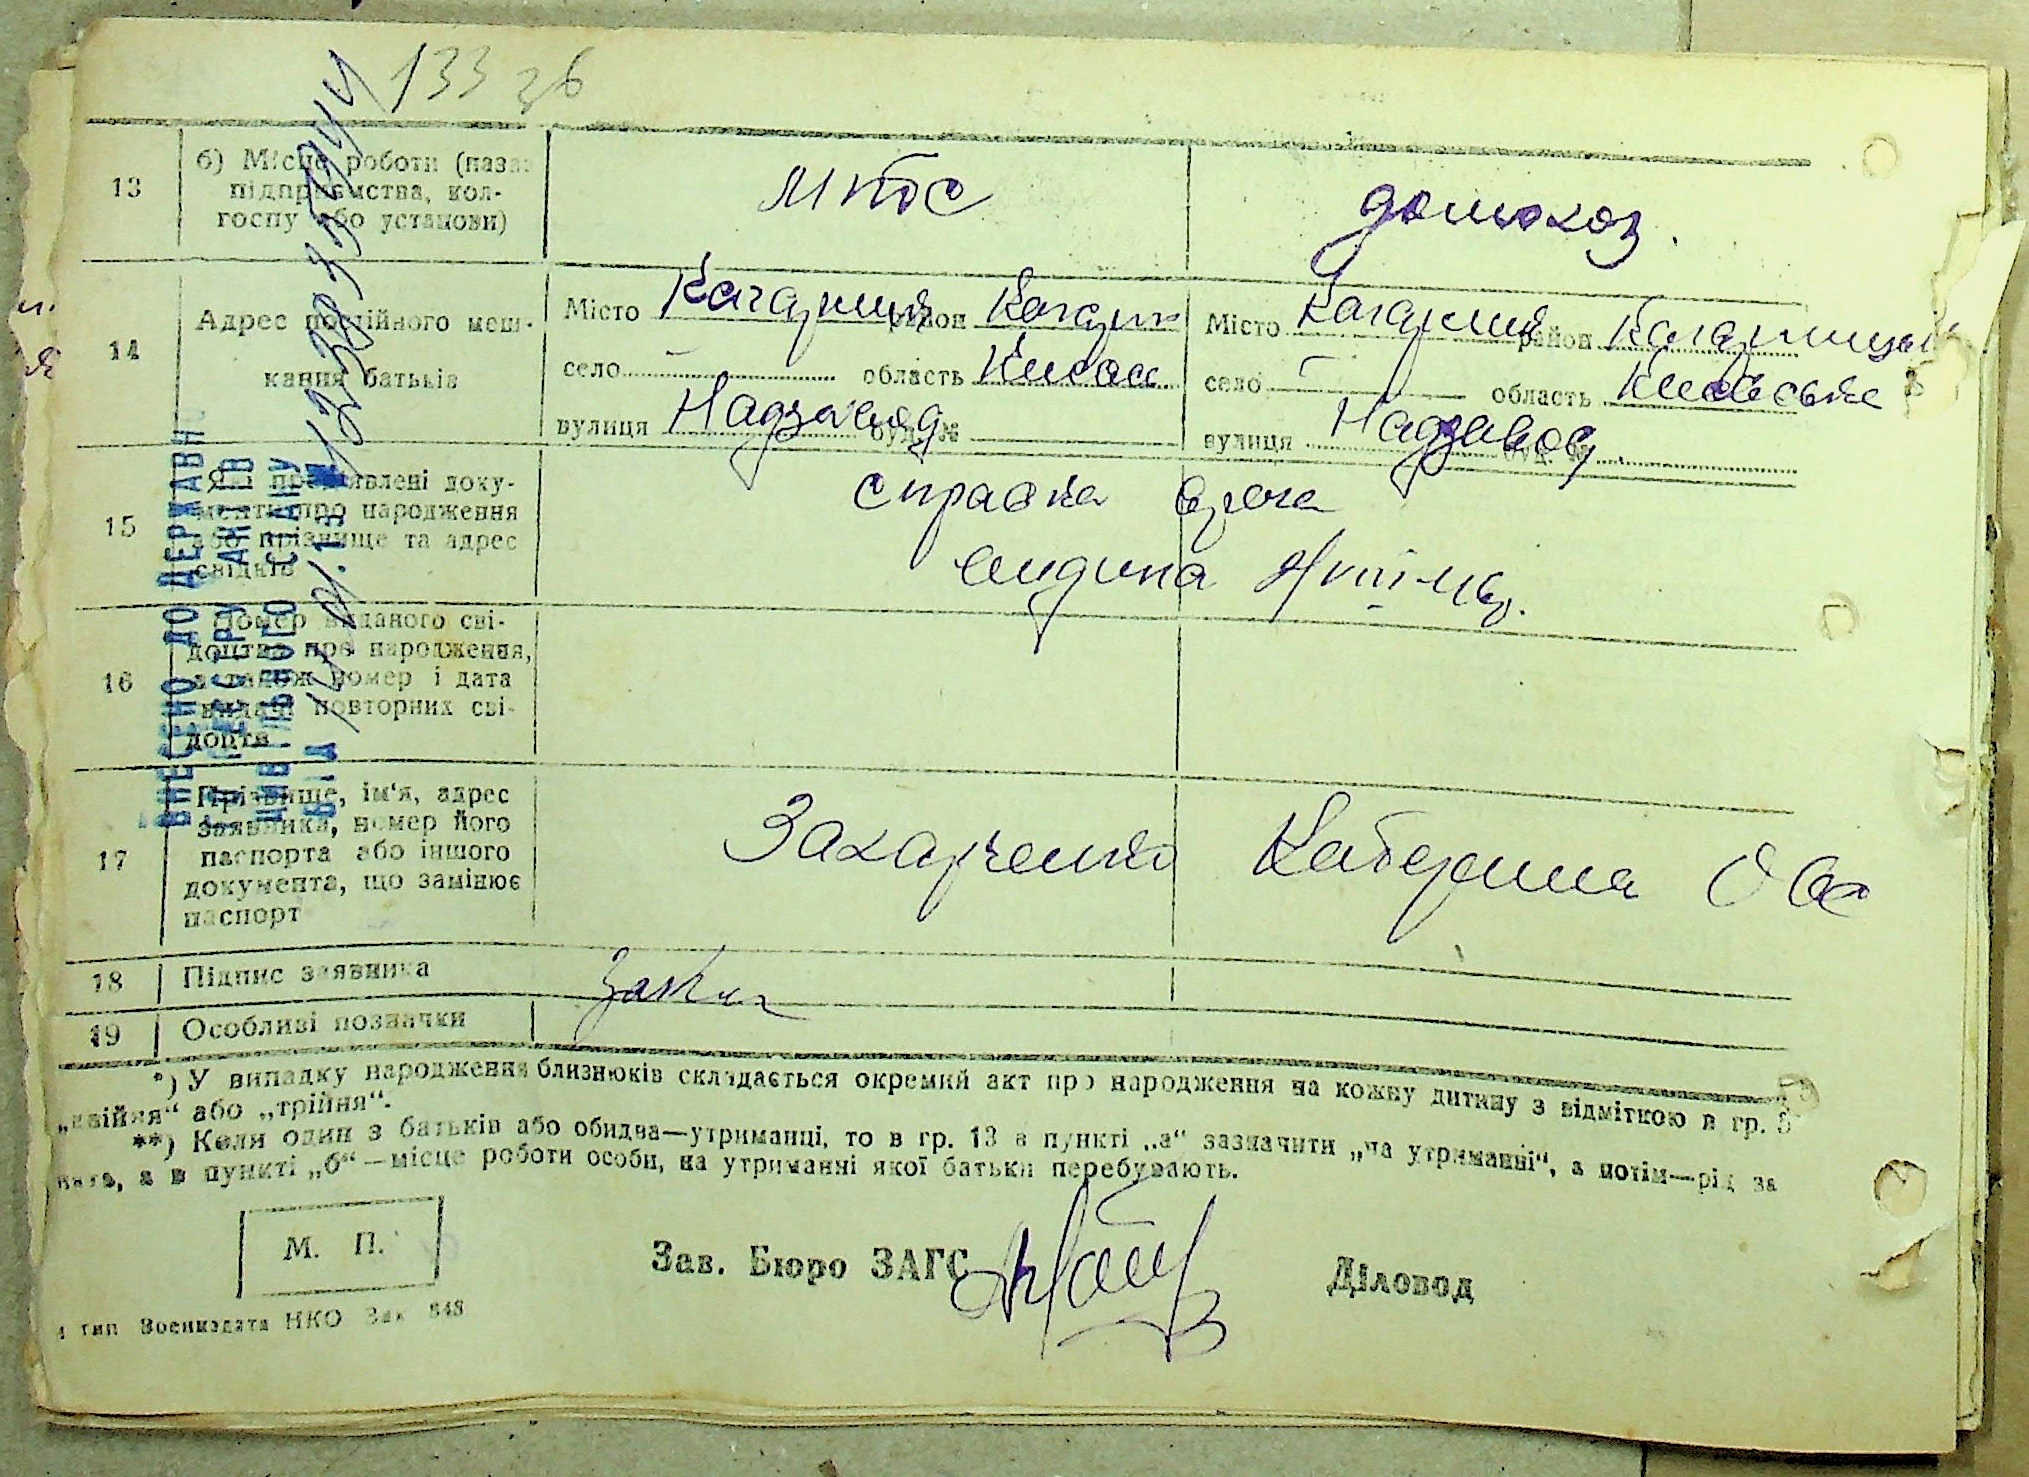 133 зв
13
б) Місце роботи (назва
підприємства, кол-
госпу або установи)
домохоз.
14
Адрес постійного меш-
кання батьків
Місто Кагарлик район Кагарл
село — область Київськ
вулиця Надзавод буд. №
Місто Кагарлик район Кагарлицьк
село — область Київська
вулиця Надзавод буд. №
15
Які пред'явлені доку-
менти про народження
або прізвище та адрес
свідків
справка врача
16
Номер виданого сві-
доцтва про народження,
а також номер і дата
видачі повторних сві-
доцтв
17
Прізвище, ім'я, адрес
заявника, номер його
паспорта або іншого
документа, що замінює
паспорт
Захарченко Катерина
18
Підпис заявника
19
Особливі позначки
*) У випадку народження близнюків складається окремий акт про народження на кожну дитину з відміткою в гр. 5
„двійня“ або „трійня“.
**) Коли один з батьків або обидва—утриманці, то в гр. 13 в пункті „а“ зазначити „на утриманні“, а потім—рід за
нять, а в пункті „б“—місце роботи особи, на утриманні якої батьки перебувають.
М. П.
Зав. Бюро ЗАГС
Діловод
тип Воениздата НКО Зак 848
ВНЕСЕНО ДО ДЕРЖАВН
РЕЄСТРУ АКТІВ
ЦИВІЛЬНОГО СТАНУ
ВІД